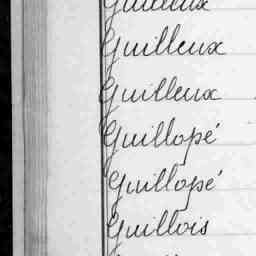 Guilleux
Guilleux
Guilleux
Guillopé
Guillopé
Guillois